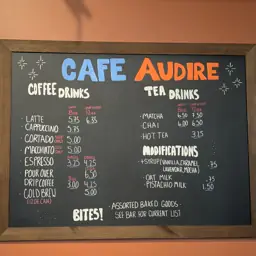 CAFE AUDIRE
COFFEE DRINKS
- LATTE 5.75 6.35
- CAPPUCCINO 5.75
- CORTADO 5.00
- MACCHIATO 5.00
- ESPRESSO 3.75 4.15
- POUR OVER 6.50
- DRIP COFFEE 3.00 4.15
- COLD BREW 5.00
TEA DRINKS
- MATCHA 6.50 7.50
- CHAI 6.00 6.50
- HOT TEA 3.25
MODIFICATIONS
+ SYRUP (VANILLA, CARAMEL, .75
LAVENDER, MOCHA)
- OAT MILK .75
- PISTACHIO MILK 1.50
BITES!
- ASSORTED BAKED GOODS -
SEE BAR FOR CURRENT LIST